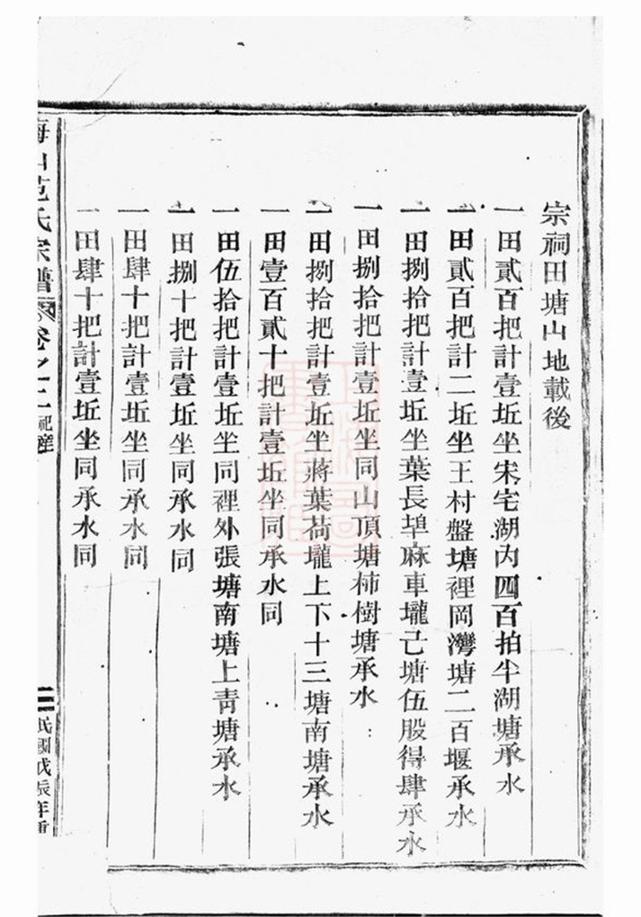 宗祠田塘山地載後
一田貳百把計壹坵坐宋宅湖内四百拍半湖塘承水
一田貳百把計二坵坐王村盤塘裡岡灣塘二百堰承水
一田捌拾把計壹坵坐葉長埠麻車壠己塘伍股得肆承水
一田捌拾把計壹坵坐同山頂塘柿樹塘承水
一田捌拾把計壹坵坐蔣葉荷壠上下十三塘南塘承水
一田壹百貳十把計壹坵坐同承水同
一田伍拾把計壹坵坐同裡外張塘南塘上青塘承水
一田捌十把計壹坵坐同承水同
一田肆十把計壹坵坐同承水同
一田肆十把計壹坵坐同承水同
山范氏宗譜 卷之二 祀產 二 民國戊辰年重